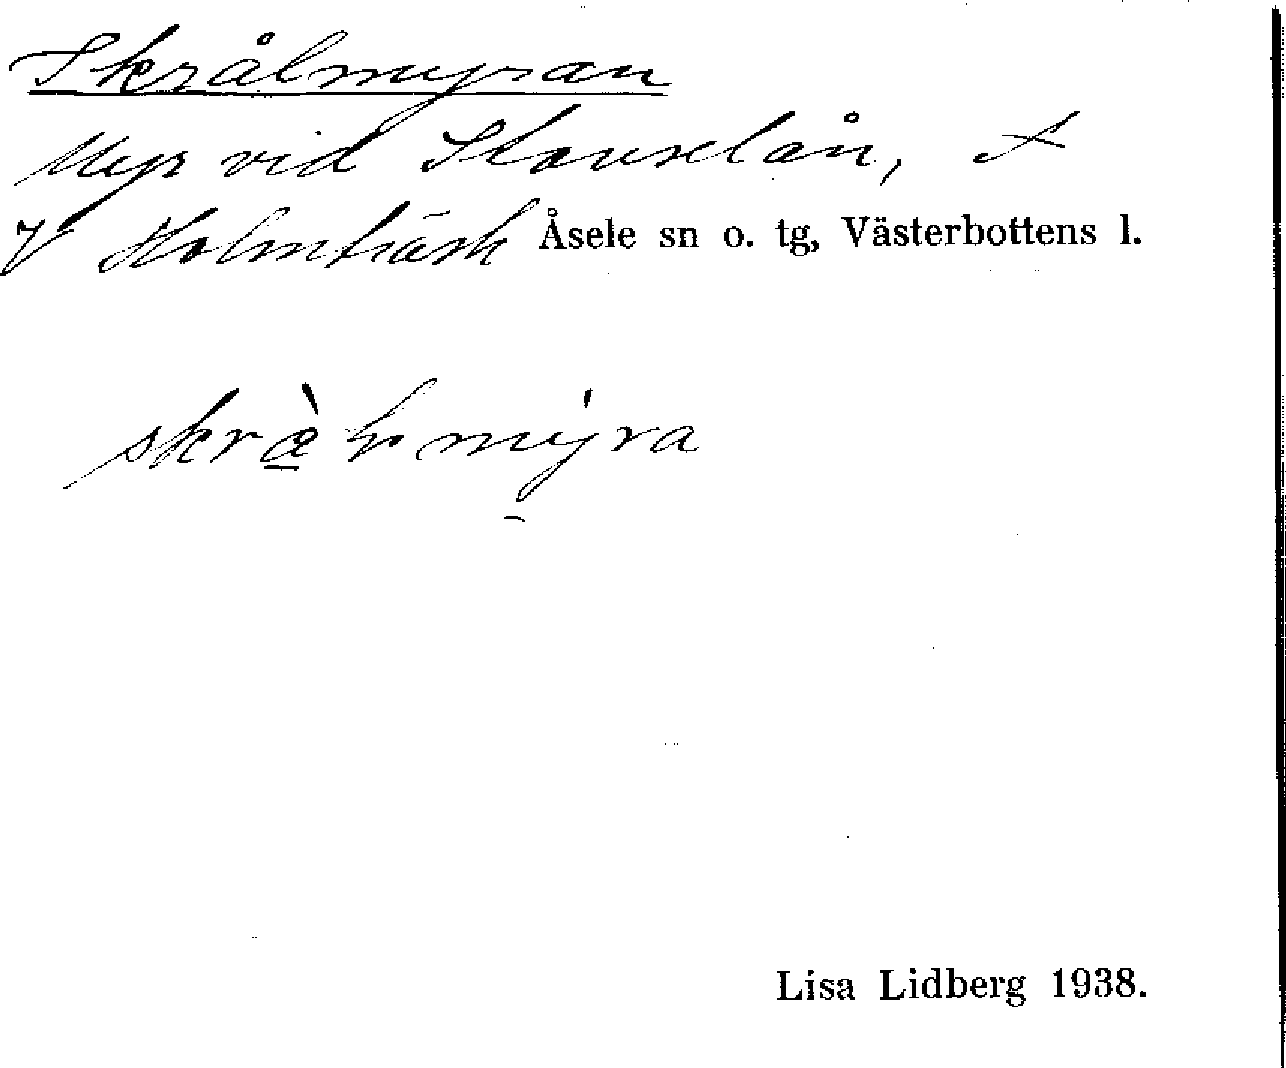 Skrålmyran
Myr vid Stavselån,
V Holmträsk Åsele sn o. tg, Västerbottens l.
Lisa Lidberg 1938.